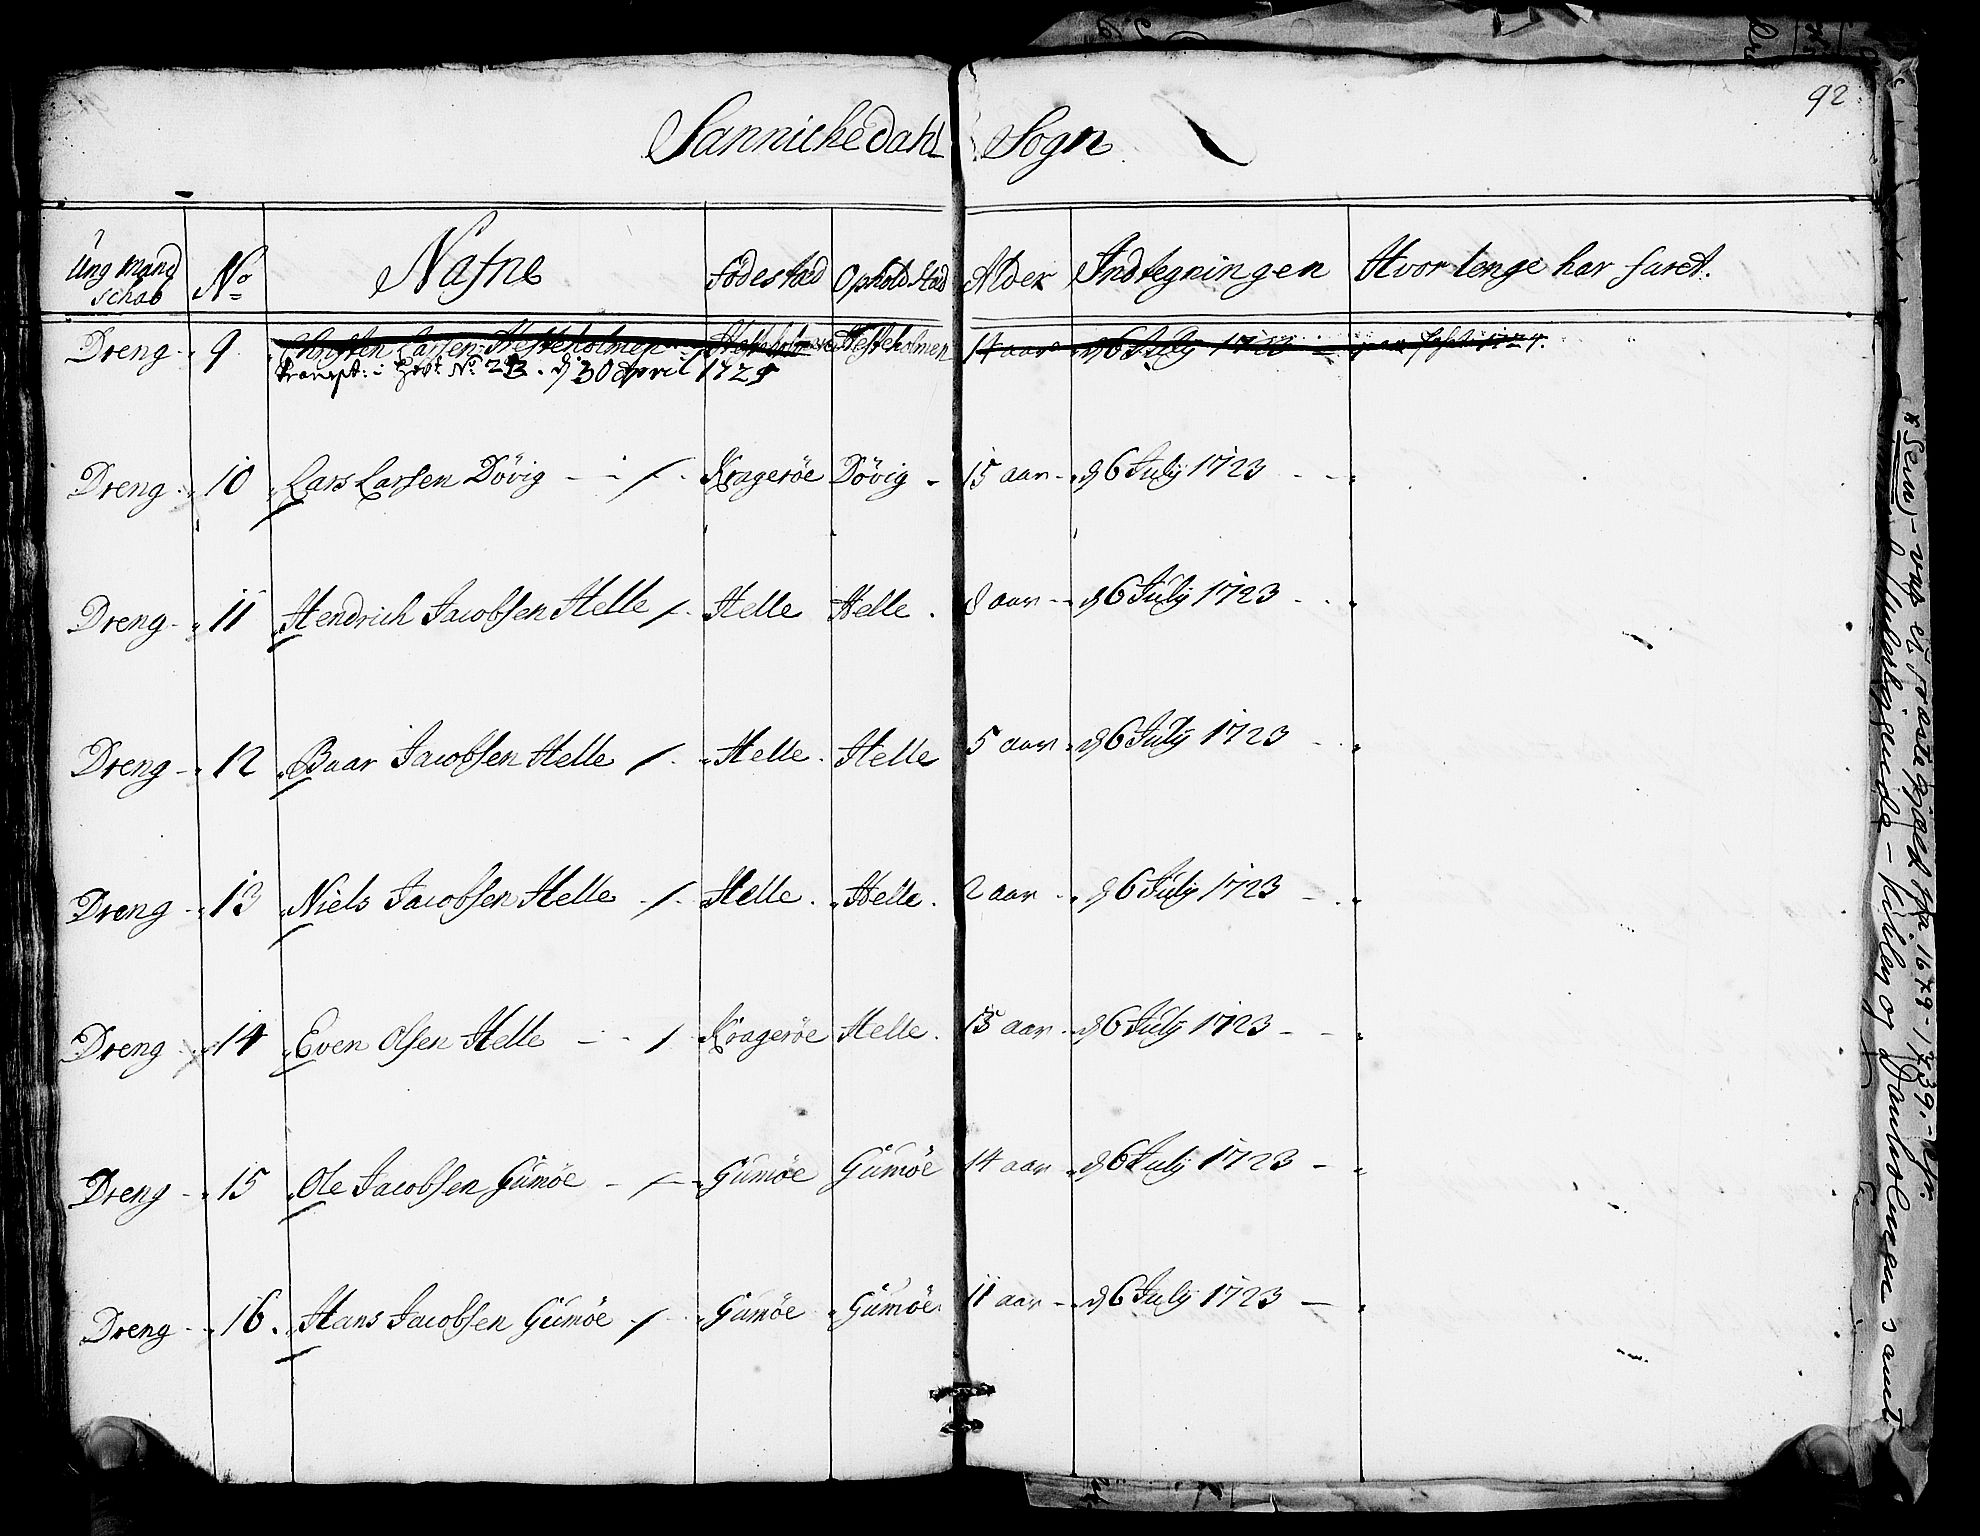 92
Sannichedahl Sogn
Ung mand schab No Nafne födestæd Ophold Stæd Alder Indtegningen Hvor lenge har faret.
Dreng 9 Christen Larsen Hesteholmen Hesteholmen Hesteholmen 14 aar d 6 July 1723
transpt: i No 23. d 30 April 1725
Dreng 10 Lars Larsen Dövig Kragerøe Dövig 15 aar d 6 July 1723
Dreng 11 Hendrich Jacobsen Helle Helle Helle 8 aar d 6 July 1723
Dreng 12 Baar Jacobsen Helle Helle Helle 5 aar d 6 July 1723
Dreng 13 Niels Jacobsen Helle Helle Helle 2 aar d 6 July 1723
Dreng 14 Even Olsen Helle Kragerøe Helle 15 aar d 6 July 1723
Dreng 15 Ole Jacobsen Gumöe Gumöe Gumöe 14 aar d 6 July 1723
Dreng 16. Hans Jacobsen Gumöe Gumöe Gumöe 11 aar d 6 July 1723
* Sem - var ei Fra 1679 - 1739. -
og Jarlsolmen samt